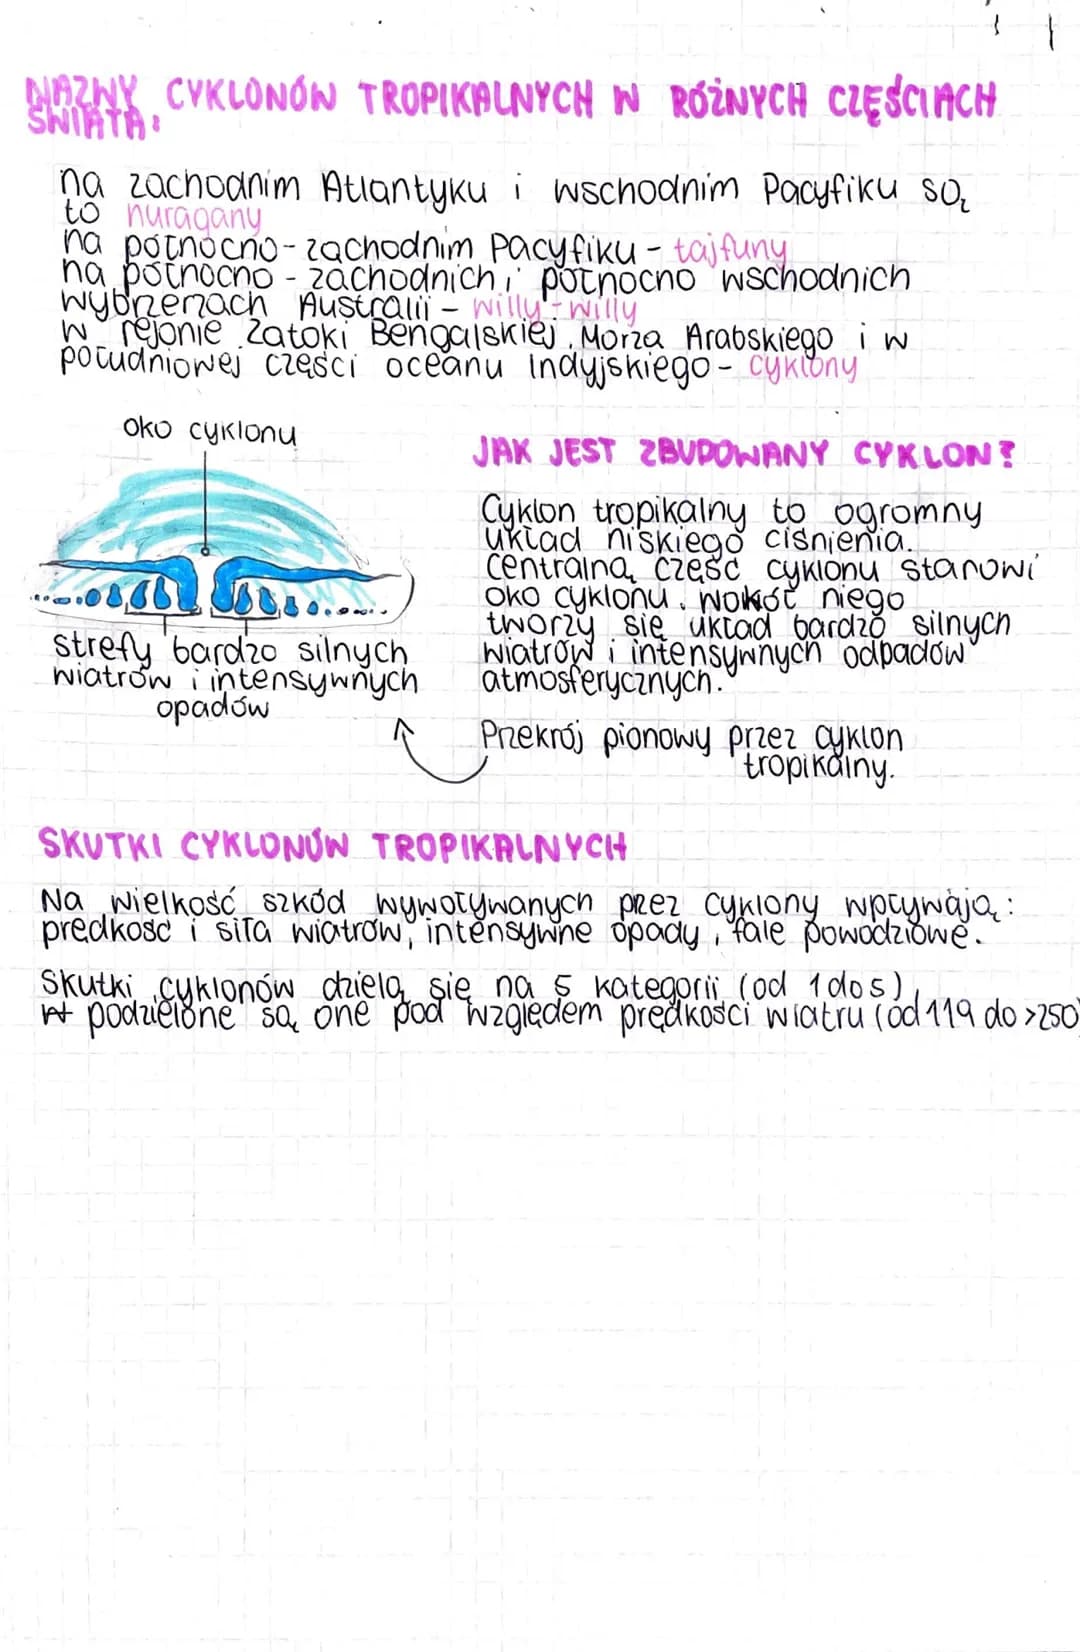 NAZWY CYKLONÓW TROPIKALNYCH W RÓŻNYCH CZĘŚCIACH
ŚWIATA:
na zachodnim Atlantyku i wschodnim Pacyfiku są
to huragany
na północno-zachodnim Pacyfiku - tajfuny
na północno - zachodnich i północno wschodnich
wybrzeżach Australii - willy-willy
w rejonie Zatoki Bengalskiej, Morza Arabskiego i w
południowej części oceanu Indyjskiego - cyklony
oko cyklonu
strefy bardzo silnych
wiatrów i intensywnych
opadów
JAK JEST ZBUDOWANY CYKLON?
Cyklon tropikalny to ogromny
układ niskiego ciśnienia.
Centralną część cyklonu stanowi
oko cyklonu. Wokół niego
tworzy się układ bardzo silnych
wiatrów i intensywnych odpadów
atmosferycznych.
Przekrój pionowy przez cyklon
tropikalny.
SKUTKI CYKLONÓW TROPIKALNYCH
Na wielkość szkód wywoływanych przez cyklony wpływają:
prędkość i siła wiatrów, intensywne opady, fale powodziowe.
Skutki cyklonów dzielą się na 5 kategorii (od 1 do 5),
podzielone są one pod względem prędkości wiatru (od 119 do >250)